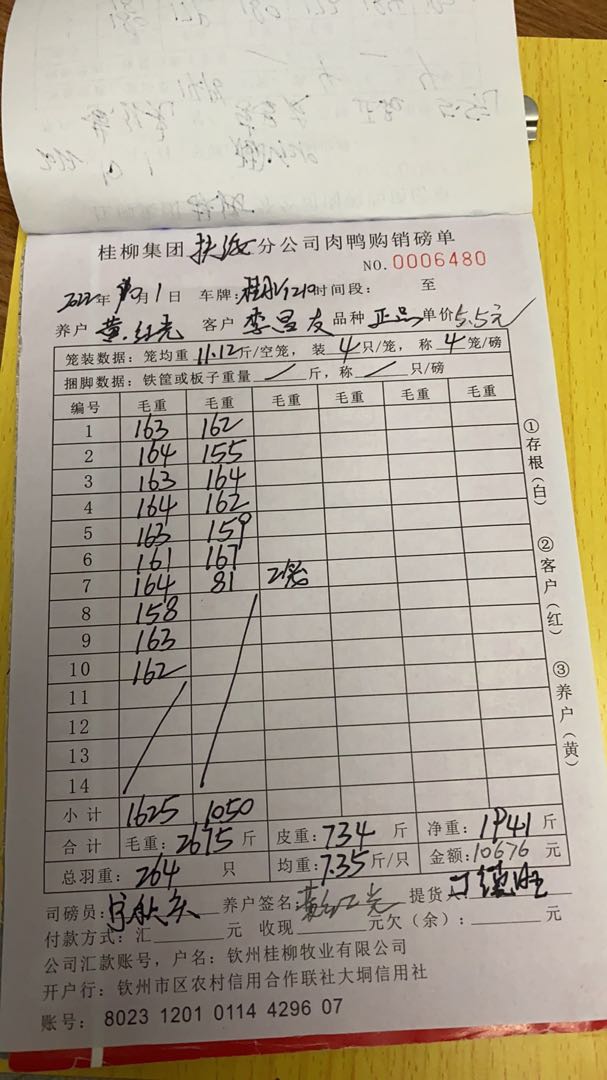 桂柳集团扶绥分公司肉鸭购销磅单
NO.0006480
2022年 月1日 车牌: 时间段: 至
养户 黄红光 客户 李昌友 品种 正品 单价5.5元
笼装数据:笼均重 11.12 斤/空笼,装 4 只/笼,称 4 笼/磅
捆脚数据:铁筐或板子重量 / 斤,称 / 只/磅
编号 毛重 毛重 毛重 毛重 毛重 毛重
1 163 162
2 164 155
3 163 164
4 164 162
5 163 159
6 161 167
7 164 81 2笼
8 158
9 163
10 162
11
12
13
14
小计 1625 1050
合计 毛重:2675斤 皮重:734斤 净重:1941斤
总羽重:264只 均重:7.35斤/只 金额:10676元
司磅员: 养户签名:黄红光 提货人:
付款方式:汇 元 收现 元欠(余): 元
公司汇款账号,户名:钦州桂柳牧业有限公司
开户行:钦州市区农村信用合作联社大垌信用社
账号: 8023 1201 0114 4296 07
①存根(白)
②客户(红)
③养户(黄)